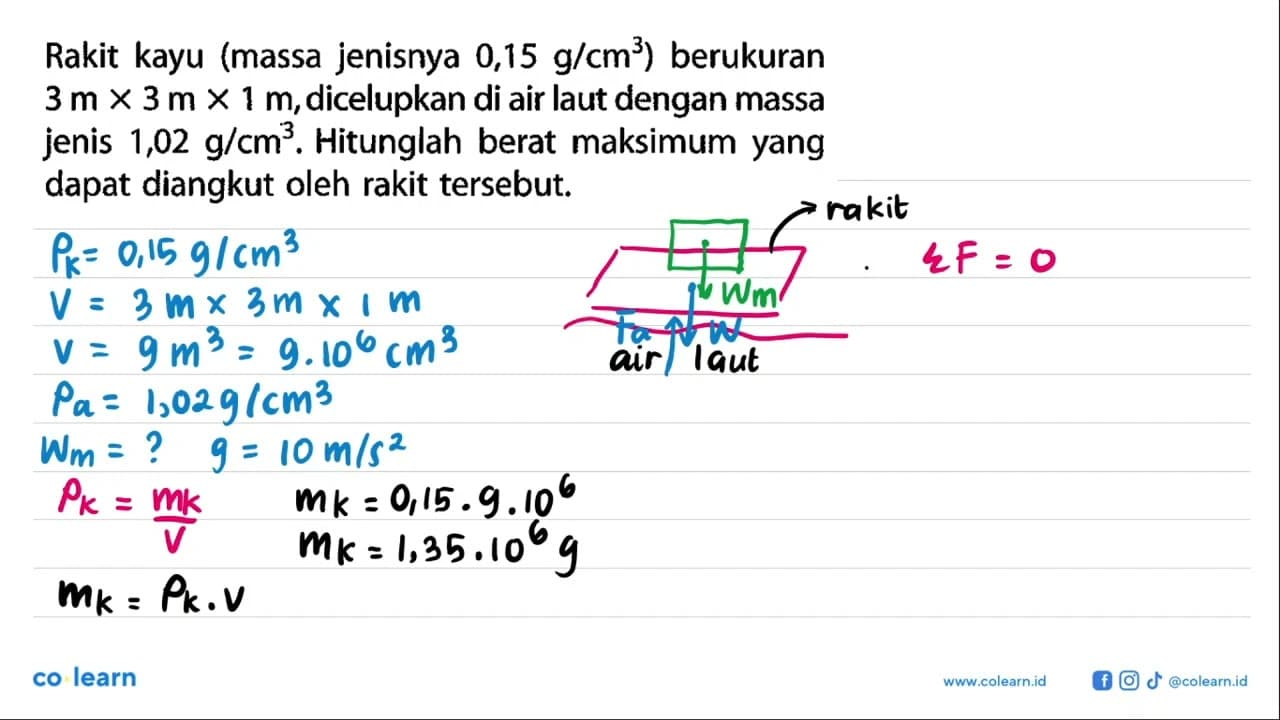 Rakit kayu (massa jenisnya 0,15 g/cm³) berukuran
3 m × 3 m × 1 m, dicelupkan di air laut dengan massa
jenis 1,02 g/cm³. Hitunglah berat maksimum yang
dapat diangkut oleh rakit tersebut.
rakit
ρk = 0,15 g/cm³
ΣF = 0
V = 3 m × 3 m × 1 m
Wm
V = 9 m³ = 9.10⁶ cm³
Fa W
air laut
ρa = 1,02 g/cm³
Wm = ? g = 10 m/s²
ρk = mk/V
mk = 0,15 . 9 . 10⁶
mk = 1,35 . 10⁶ g
mk = ρk . V
co learn
www.colearn.id
@colearn.id